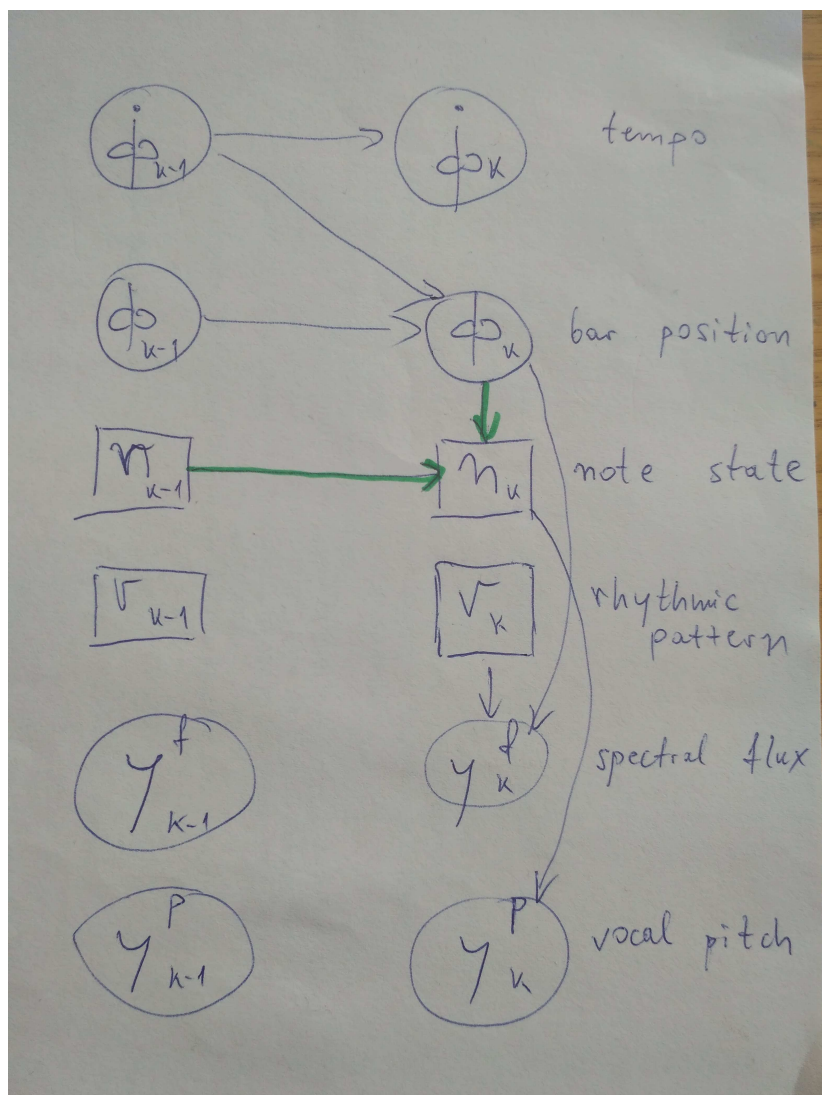 φ̇ₖ₋₁ φ̇ₖ tempo
φₖ₋₁ φₖ bar position
nₖ₋₁ nₖ note state
rₖ₋₁ rₖ rhythmic
pattern
yᶠₖ₋₁ yᶠₖ spectral flux
yᵖₖ₋₁ yᵖₖ vocal pitch